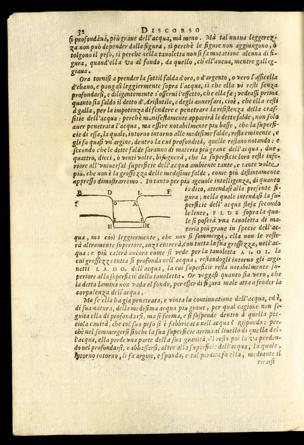 32 DISCORSO
si profondano, più graue dell'acqua, mà meno. Mà tal nuoua leggerez-
za non può depender dalla figura, sì perchè le figure non aggiungono, ò
tolgono il peso, sì perche nella tauoletta non si fà mutazione alcuna di fi-
gura, quand'ella và al fondo, da quello, ch'ell'aueua, mentre galleg-
giaua.
Ora torniſi à prender la ſottil falda d'oro, ò d'argento, o vero l'aſſicella
d'ebano, e pongaſi leggiermente ſopra l'acqua, sì che ella vi reſti ſenza
profondarſi, e diligentemente s'oſſerui l'effetto, che ella fà;
quanto ſia ſaldo il detto d'Ariſtotile, e degli auuerſarij, cioè, che ella reſti
à galla, per la impotenza di fendere e penetrare la reſiſtenza della craſ-
ſizie dell'acqua: perchè manifeſtamente apparirà le dette falde, non ſolo
auer penetrata l'acqua, ma eſſere notabilmente più baſſe, che la ſuperfi-
cie di eſſa, la quale, intorno intorno alle medeſime falde, reſta eminente, e
gli fa quaſi vn'argine, dentro la cui profondità, quelle reſtano notando: e
ſecondo che le dette falde ſaranno di materia più graue dell'acqua, due,
quattro, dieci, o venti volte, biſognerà, che la ſuperficie loro reſti infe-
riore all'vniuerſal ſuperficie dell'acqua ambiente tante, e tante volte
più, che non è la groſſezza delle medeſime falde, come più diſtintamente
appreſſo dimoſtreremo. In tanto per più ageuole intelligenza, di quanto
io dico, attendaſi alla preſente fi-
gura; nella quale intendaſi la ſu-
perficie dell'acqua ſteſa ſecondo
le linee, F L D B ſopra la qua-
le ſi poſerà vna tauoletta di ma-
teria più graue in ſpecie dell'ac-
qua, ma così leggiermente, che non ſi ſommerga, ella non le reſte-
rà altramente ſuperiore, anzi entrerà, con tutta la ſua groſſezza, nell'ac-
qua: e più calerà ancora come ſi vede per la tauoletta A I O I. la
cui groſſezza tutta ſi profonda nell'acqua, reſtandogli intorno gli argi-
netti L A. D O. dell'acqua, la cui ſuperficie reſta notabilmente ſu-
periore alla ſuperficie della tauoletta. Or veggaſi quanto ſia vero, che
la detta lamina non vada al fondo, per eſſer di figura male atta a fender la
corpulenza dell'acqua.
Ma ſe ella ha già penetrata, e vinta la continuazione dell'acqua, ed è,
di ſua natura, della medeſima acqua più graue, per qual cagione non ſe-
guita ella di profondarſi, ma ſi ferma, e ſi ſoſpende dentro à quella pic-
ciola cauità, che col ſuo peſo ſi è fabbricata nell'acqua? riſpondo: per-
chè nel ſommergerſi finche la ſua ſuperficie arriua al liuello di quella del-
l'acqua, ella perde vna parte della ſua grauità, e'l reſto poi lo và perden-
do nel profondarſi, e abbaſſarſi, oltre alla ſuperficie dell'acqua, la quale,
intorno intorno, li fa argine, e ſponda, e tal perdita fa ella, mediante il
tirarſi